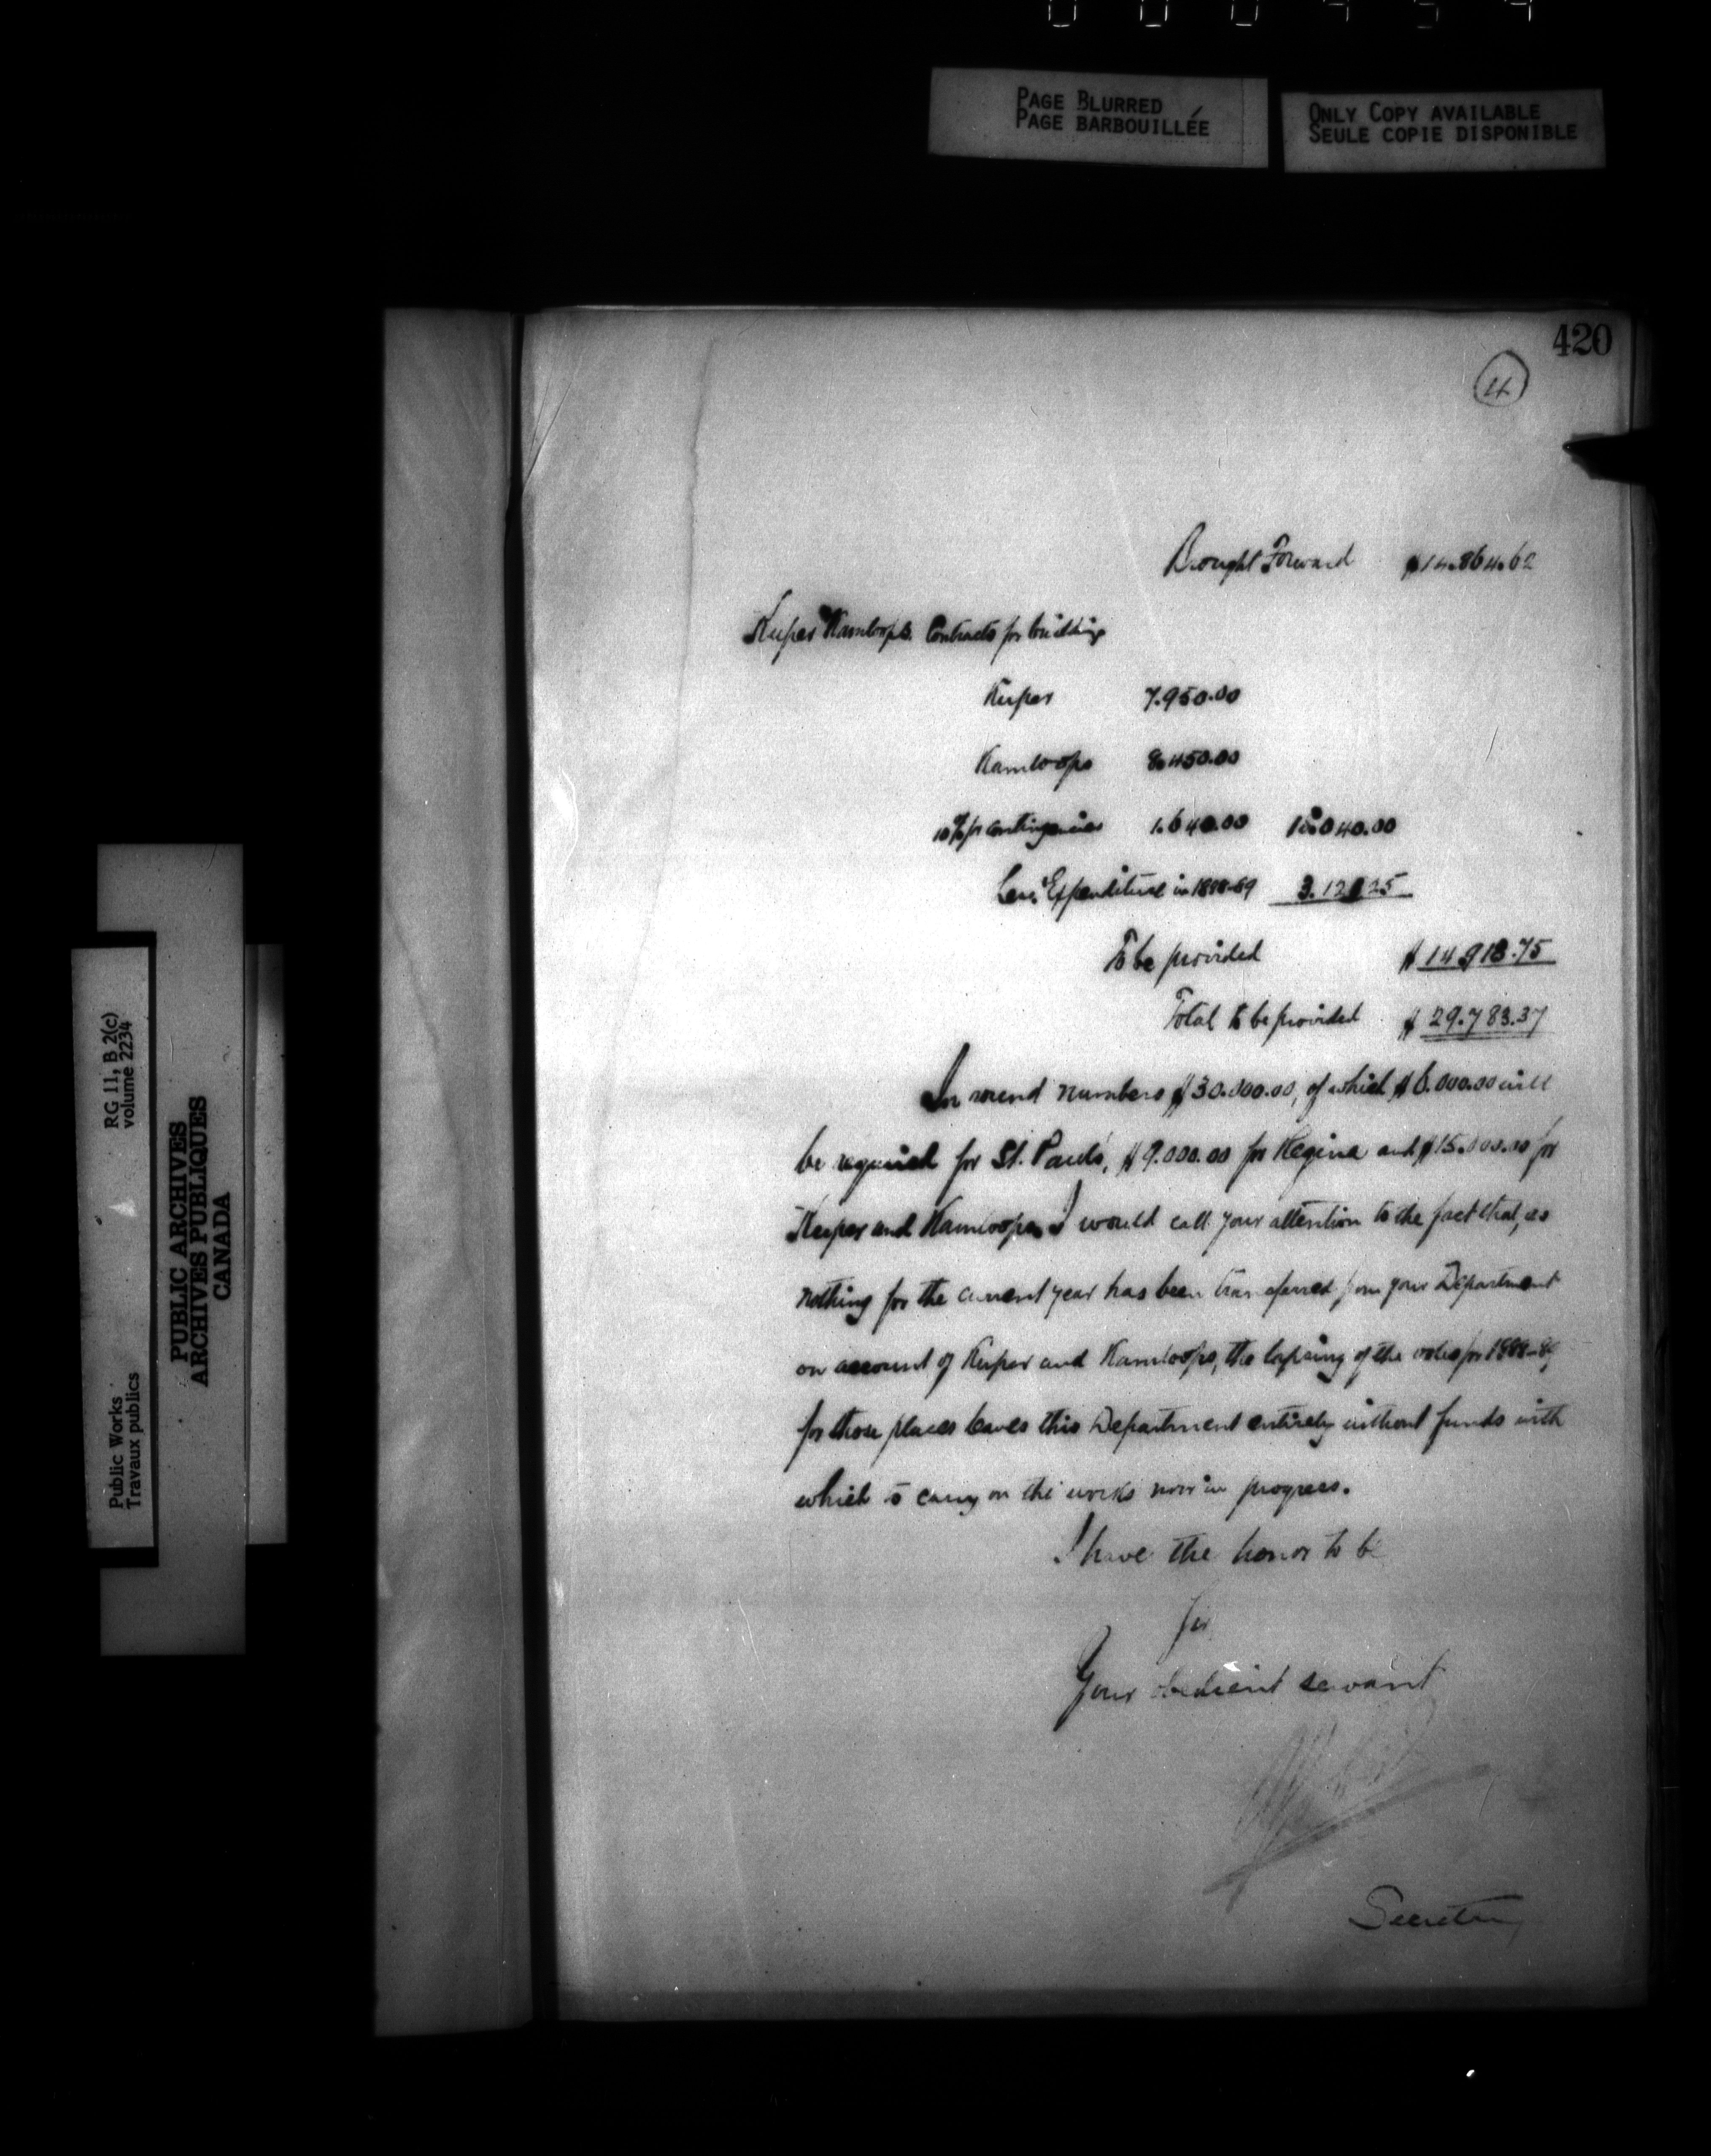 PAGE BLURRED
PAGE BARBOUILLÉE
ONLY COPY AVAILABLE
SEULE COPIE DISPONIBLE
420
4
Brought Forward $14.864.62
Kuper Kamloops. Contracts for building
Kuper 7.950.00
Kamloops 8.450.00
10% for contingencies 1.640.00 18.040.00
Less Expenditure in 1888-89 3.121.25
To be provided $14 918.75
Total to be provided $29.783.37
In round numbers $30.000.00, of which $6.000.00 will
be required for St. Paul's, $9.000.00 for Regina and $15.000.00 for
Kuper and Kamloops. I would call your attention to the fact that, as
nothing for the current year has been transferred from your Department
on account of Kuper and Kamloops, the lapsing of the votes for 1888-89
for those places leaves this Department entirely without funds with
which to carry on the works now in progress.
I have the honor to be
Sir
Your obedient servant
Secretary
RG 11, B 2(c)
volume 2234
PUBLIC ARCHIVES
ARCHIVES PUBLIQUES
CANADA
Public Works
Travaux publics